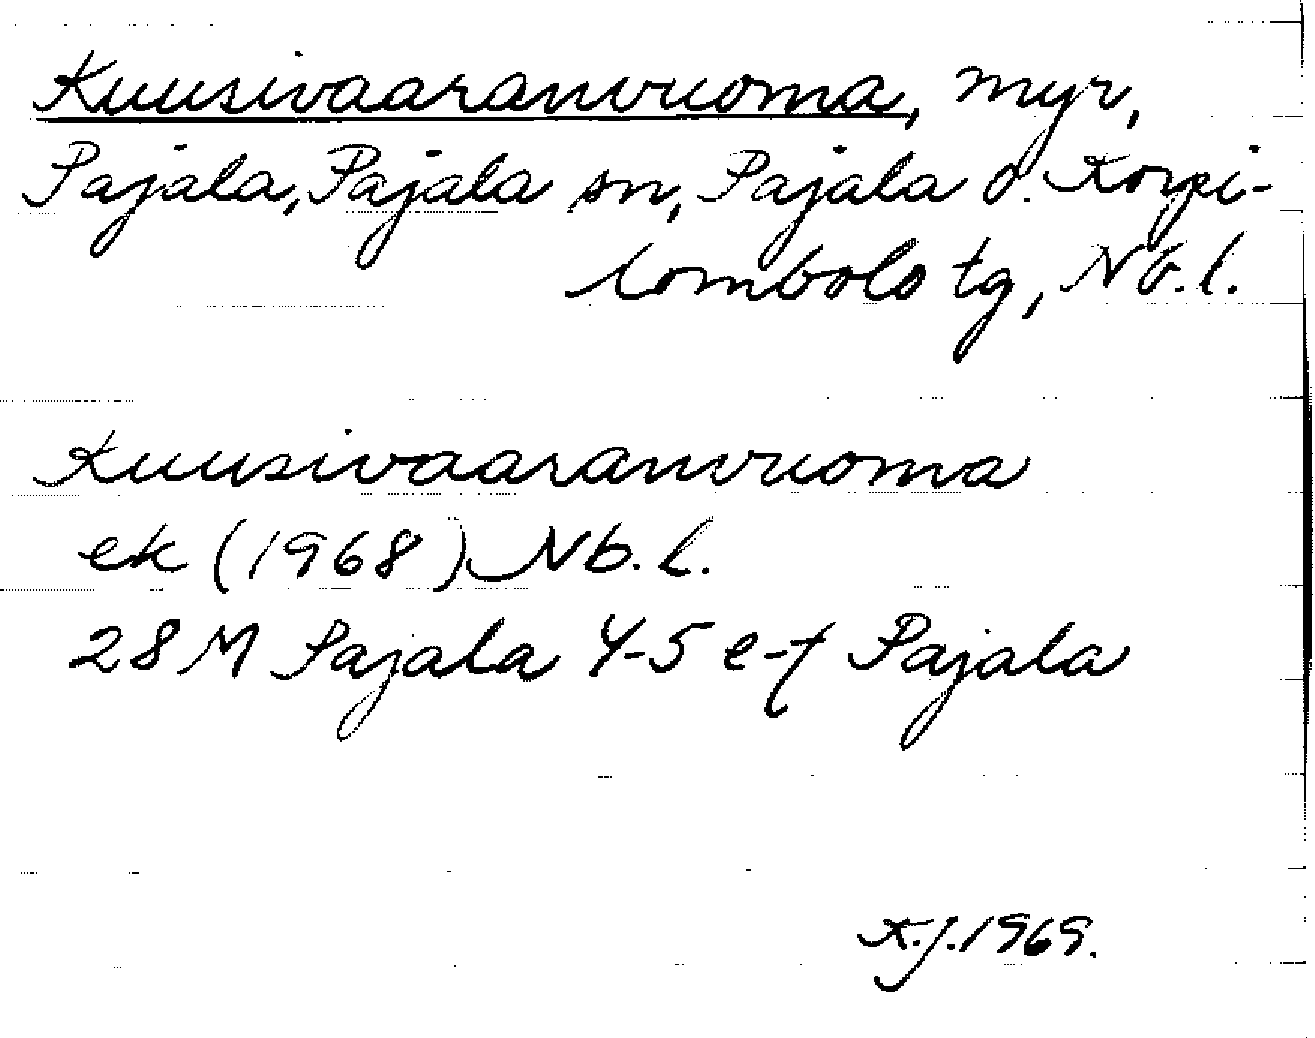 Kuusivaaranvuoma, myr,
Pajala, Pajala sn, Pajala o. Korpi-
lombolo tg, Nb.l.
Kuusivaaranvuoma
ek (1968) Nb.l.
28M Pajala 4-5 e-f Pajala
K.J. 1969.